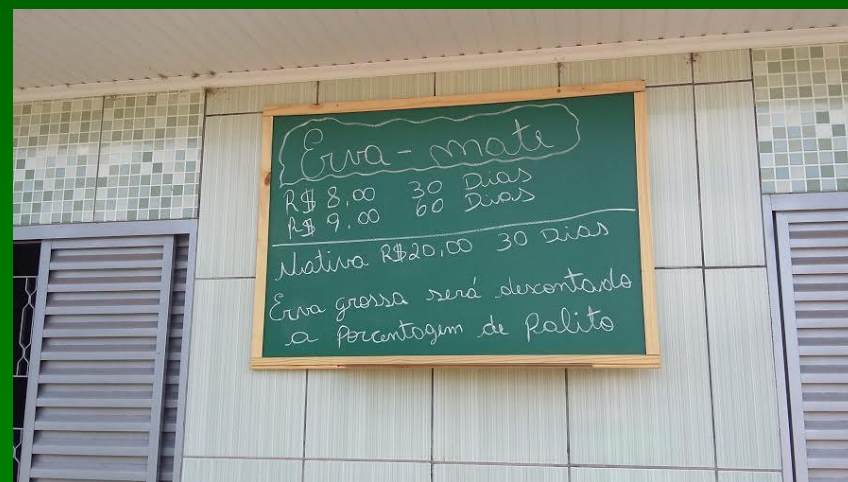 Erva-mate
R$ 8,00 30 Dias
R$ 9,00 60 Dias
Nativa R$20,00 30 Dias
Erva grossa será descontado
a Porcentagem de Palito